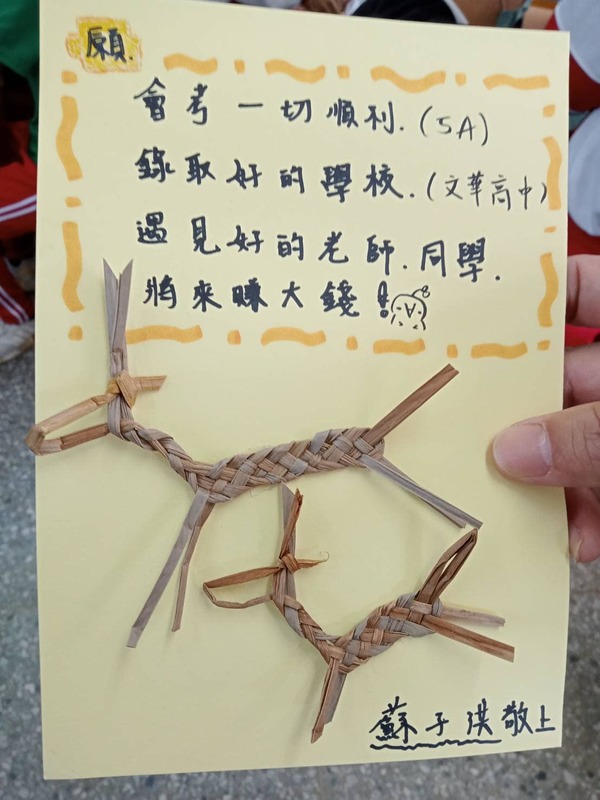 願.
會考一切順利.(5A)
錄取好的學校.(文華高中)
遇見好的老師.同學.
將來賺大錢!
蘇子淇敬上